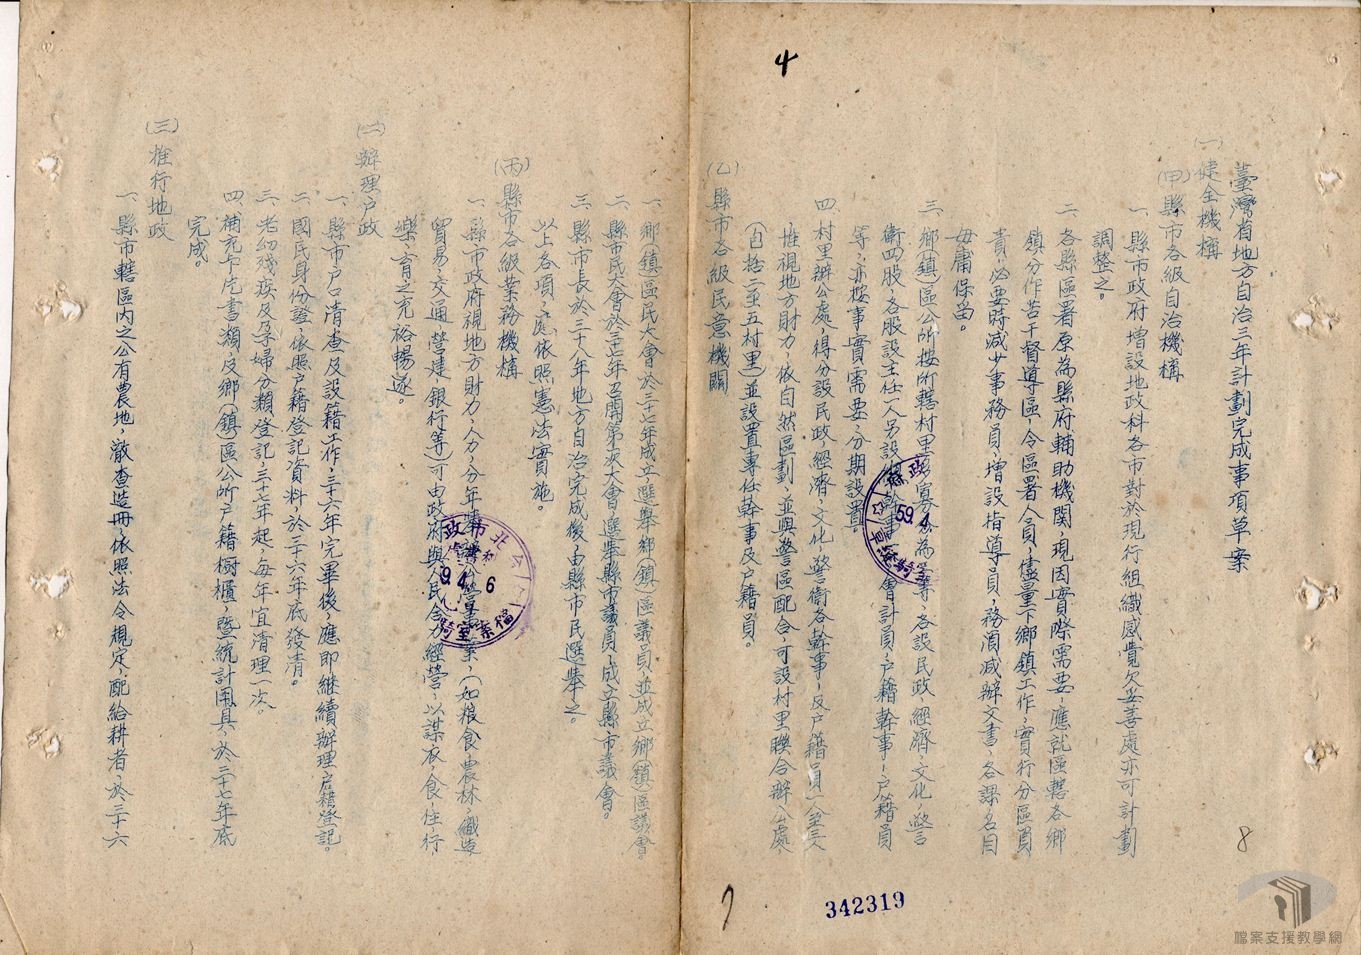 4
臺灣省地方自治三年計劃完成事項草案
(一)健全機構
(甲)縣市各級自治機構
一、縣市政府增設地政科各市對於現行組織感覺欠妥善處亦可計劃
調整之。
二、各縣區署原為縣府輔助機關,現因實際需要,應就區轄各鄉
鎮分作若干督導區,令區署人員,儘量下鄉鎮工作,實行分區員
責,必要時減少事務員,增設指導員,務須減辦文書,各課名目
毋庸保留。
三、鄉(鎮)區公所按所轄村里多寡分為等,各設民政經濟,文化,警
衛四股,各股設主任一人另設幹事,會計員,戶籍幹事,戶籍員
等,亦按事實需要,分期設置。
四、村里辦公處,得分設民政,經濟,文化,警衛各幹事,及戶籍員一全三人
惟視地方財力,依自然區劃,並與警區配合,可設村里聯合辦公處,
(包括二至五村里)並設置專任幹事及戶籍員。
(乙)縣市各級民意機關
一、鄉(鎮)區民大會於三十七年成立,選舉鄉(鎮)區議員,並成立鄉(鎮)區議會。
二、縣市民大會於三十七年召開第一次大會,選舉縣市議員,成立縣市議會。
三、縣市長於三十八年地方自治完成後,由縣市民選舉之。
以上各項,應依照憲法實施。
(丙)縣市各級業務機構
一、縣市政府視地方財力,人力,分年事業,(如粮食農林,織造
貿易,交通,營建,銀行等)可由政府與人民合力經營,以謀衣,食,住,行
樂,育之充裕暢遂。
(二)辦理戶政
一、縣市戶口清查,及設籍工作,三十六年完畢後,應即繼續辦理戶籍登記。
二、國民身份證,依照戶籍登記資料,於三十六年底發清。
三、老幼殘疾及孕婦分類登記,三十七年起,每年宜清理一次。
四、補充卡片書類,及鄉(鎮)區公所戶籍櫥櫃,暨統計用具,於三十七年底
完成。
(三)推行地政
一、縣市轄區內之公有農地,澈查造冊,依照法令規定,配給耕者,於三十六
8
7
342319
59.4
94.6
檔案室
檔案支援教學網